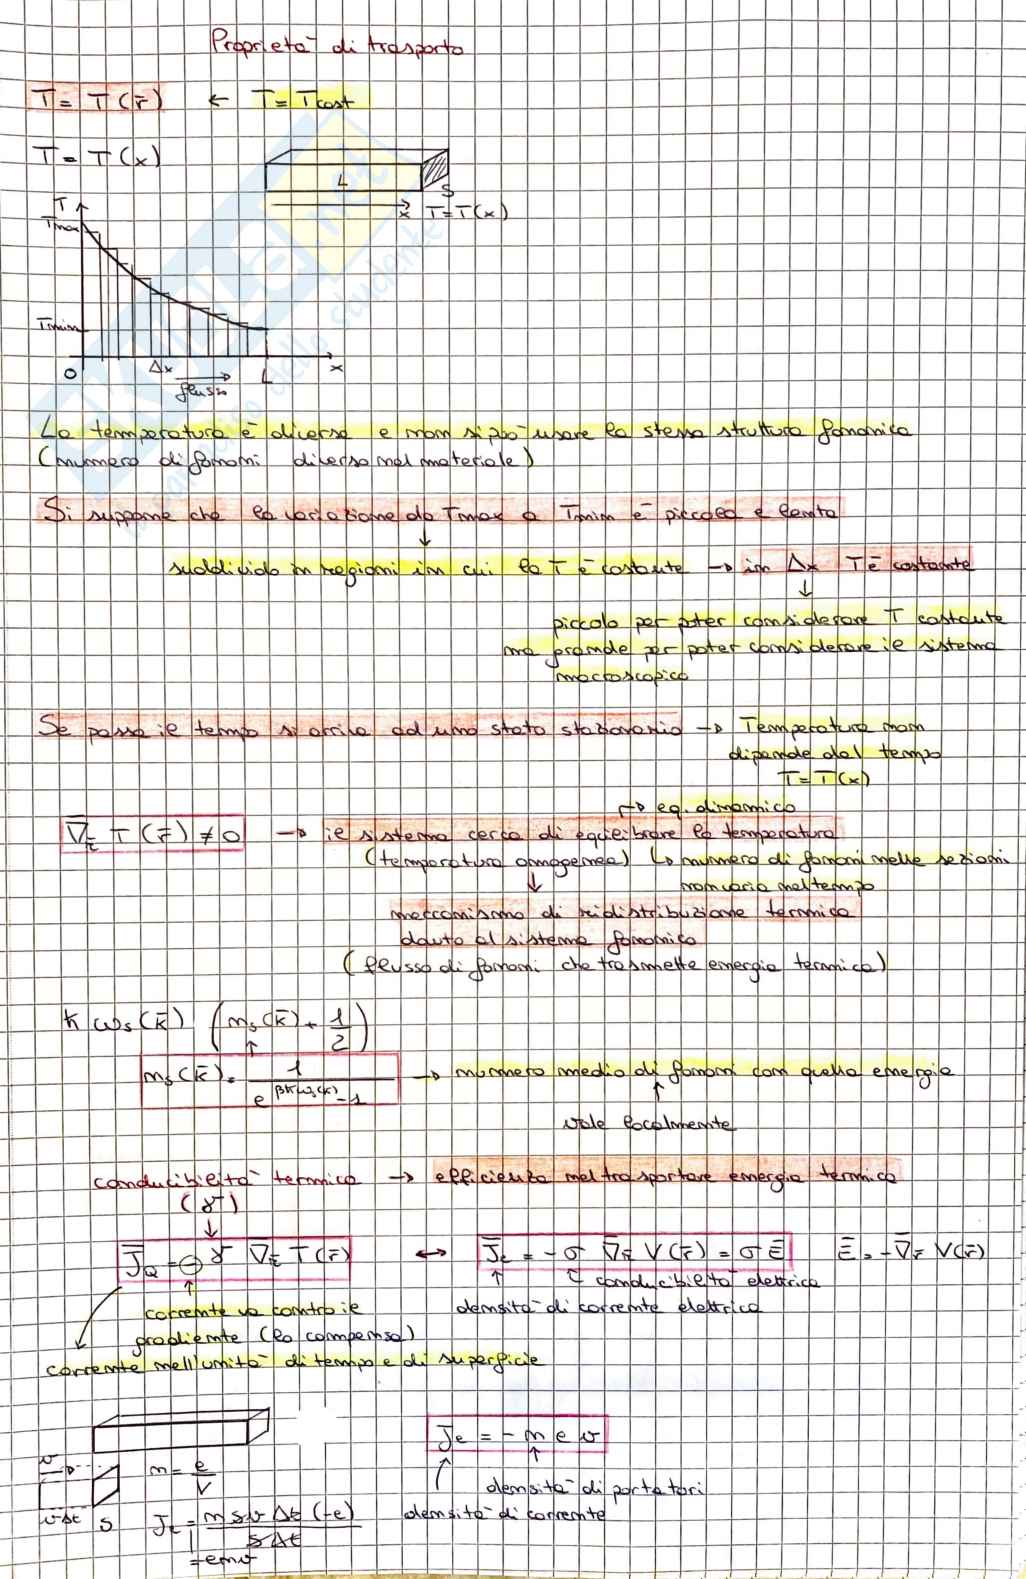 Proprietà di trasporto
T = T(r̄) ← T = Tcost
T = T(x)
L
S
x T = T(x)
T
Tmax
Tmin
0 Δx L x
flusso
La temperatura è diversa e non si può usare la stessa struttura fononica
(numero di fononi diverso nel materiale)
Si suppone che la variazione da Tmax a Tmin è piccola e lenta
↓
suddivido in regioni in cui la T è costante → in Δx T è costante
↓
piccolo per poter considerare T costante
ma grande per poter considerare il sistema
macroscopico
Se passa il tempo si arriva ad uno stato stazionario → Temperatura non
dipende dal tempo
T = T(x)
↱ eq. dinamico
∇̄r̄ T(r̄) ≠ 0 → il sistema cerca di equilibrare la temperatura
(temperatura omogenea) ↳ numero di fononi nelle sezioni
non varia nel tempo
↓
meccanismo di ridistribuzione termica
dovuto al sistema fononico
(flusso di fononi che trasmette energia termica)
ħ ωs(k̄) (ns(k̄) + 1/2)
↑
ns(k̄) = 1 / (e^(βħωs(k)) - 1) → numero medio di fononi con quella energia
↑
vale localmente
conducibilità termica → efficienza nel trasportare energia termica
(γ)
↓
J̄Q = - γ ∇̄r̄ T(r̄) ↔ J̄e = - σ ∇̄r̄ V(r̄) = σ Ē Ē = - ∇̄r̄ V(r̄)
conducibilità elettrica
corrente va contro il densità di corrente elettrica
gradiente (lo compensa)
corrente nell'unità di tempo e di superficie
Je = - n e v
v
n = e/V
densità di portatori
vΔt S Je = n s v Δt (-e) / s Δt densità di corrente
= -env